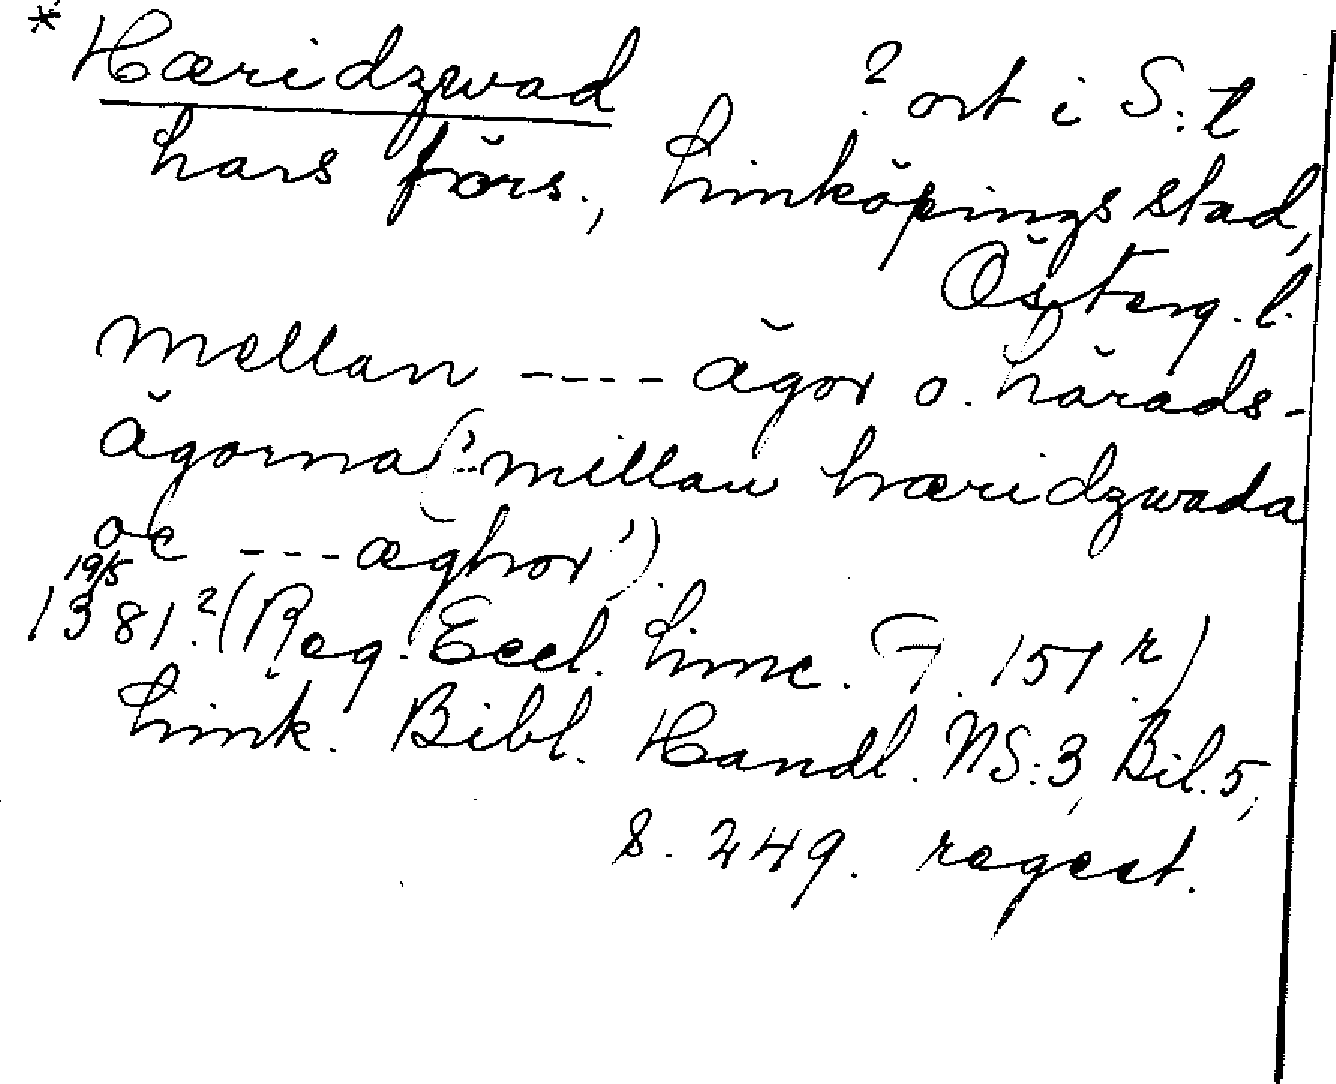 * Hæridzwad ? ort i S:t
Lars förs., Linköpings stad,
Österg. l.
mellan ---- ägor o. härads-
ägorna ('--millan hæridzwada
oc --- æghor').
19/5
1381? (Reg. Eccl. Linc. F. 151 r)
Link. Bibl. Handl. NS:3, Bil. 5,
s. 249. regest.